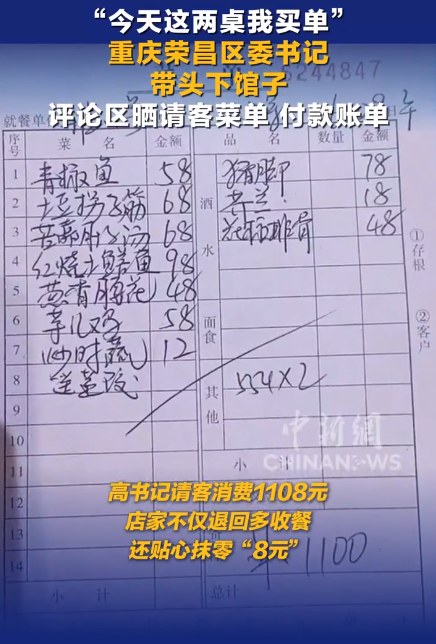 “今天这两桌我买单”
重庆荣昌区委书记
带头下馆子
评论区晒请客菜单 付款账单
244847
就餐单
午
序号 菜名 金额 品名 数量 金额
1 青椒鱼 58 猪脚 78
2 68 酒 18
3 68 水 排骨 48
4 红烧土鳝鱼 98
5 48
6 芋儿鸡 58 面食
7 炒时蔬 12
8 其他 554×2
9
10
11 小计
12
13
14 1100
小计 总计
①存根
②客户
中新網
CHINANEWS
高书记请客消费1108元
店家不仅退回多收餐
还贴心抹零“8元”